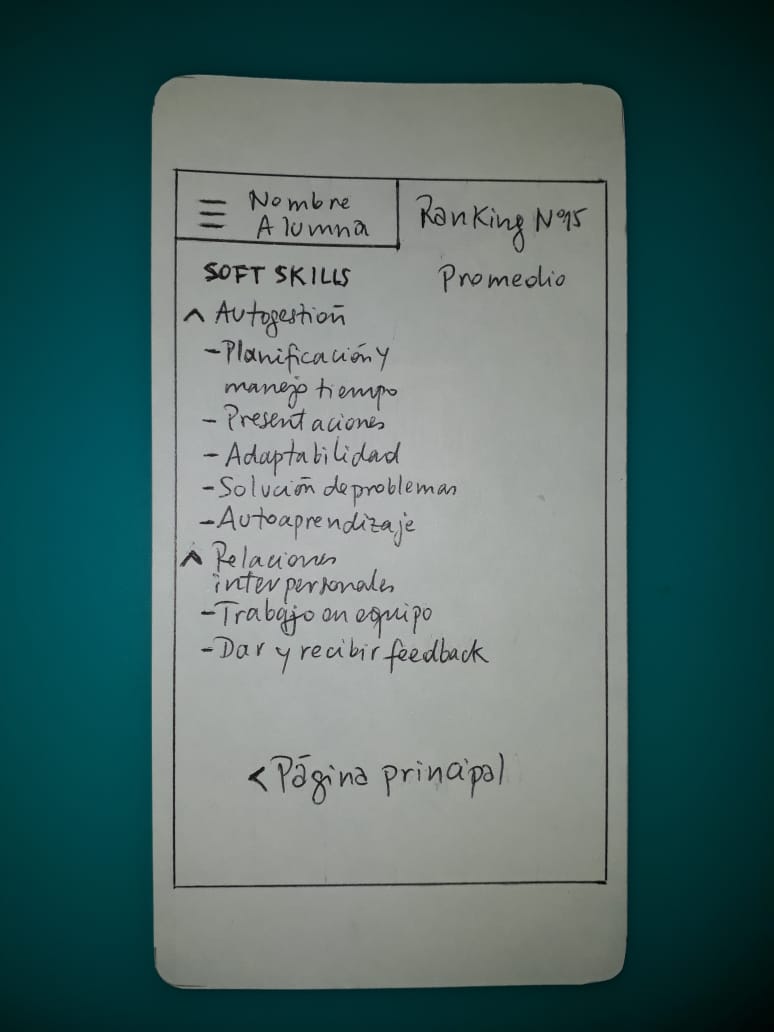 ☰ Nombre Alumna
Ranking N°15
SOFT SKILLS
Promedio
^ Autogestión
- Planificación y
manejo tiempo
- Presentaciones
- Adaptabilidad
- Solución de problemas
- Autoaprendizaje
^ Relaciones
interpersonales
- Trabajo en equipo
- Dar y recibir feedback
< Página principal